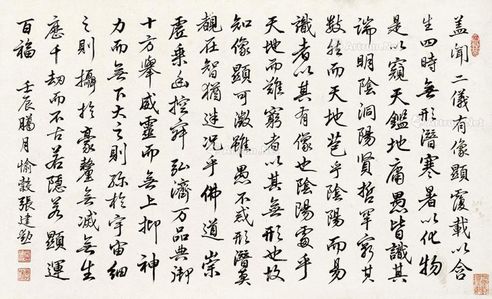 盖聞二儀有像顯覆載以含
生四時無形潛寒暑以化物
是以窺天鑑地庸愚皆識其
端明陰洞陽賢哲罕窮其
數然而天地苞乎陰陽而易
識者以其有像也陰陽處乎
天地而難窮者以其無形也故
知像顯可徵雖愚不惑形潛莫
覩在智猶迷况乎佛道崇
虛乘幽控寂弘濟万品典御
十方舉威靈而無上抑神
力而無下大之則弥於宇宙細
之則攝於豪釐無滅無生
歷千劫而不古若隱若顯運
百福 壬辰臘月 張建